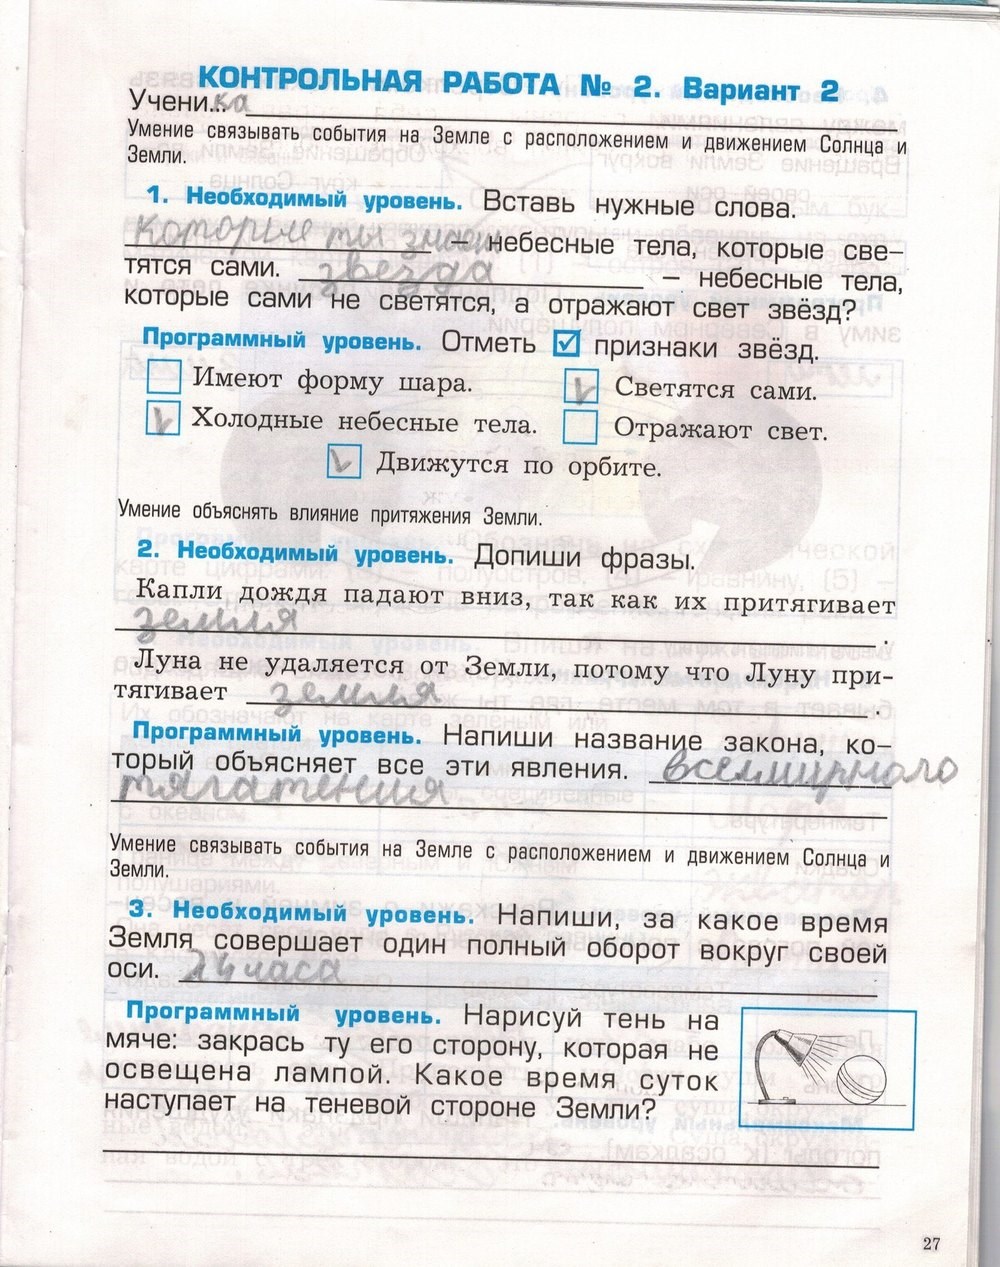 КОНТРОЛЬНАЯ РАБОТА № 2. Вариант 2
Учени...ка
Умение связывать события на Земле с расположением и движением Солнца и
Земли.
1. Необходимый уровень. Вставь нужные слова.
Которые ты знаеш – небесные тела, которые све-
тятся сами. звезда – небесные тела,
которые сами не светятся, а отражают свет звёзд?
Программный уровень. Отметь ☑ признаки звёзд.
Имеют форму шара. V Светятся сами.
V Холодные небесные тела. Отражают свет.
V Движутся по орбите.
Умение объяснять влияние притяжения Земли.
2. Необходимый уровень. Допиши фразы.
Капли дождя падают вниз, так как их притягивает
земля.
Луна не удаляется от Земли, потому что Луну при-
тягивает земля.
Программный уровень. Напиши название закона, ко-
торый объясняет все эти явления. всемирного
тягатения
Умение связывать события на Земле с расположением и движением Солнца и
Земли.
3. Необходимый уровень. Напиши, за какое время
Земля совершает один полный оборот вокруг своей
оси. 24 часа
Программный уровень. Нарисуй тень на
мяче: закрась ту его сторону, которая не
освещена лампой. Какое время суток
наступает на теневой стороне Земли?
27